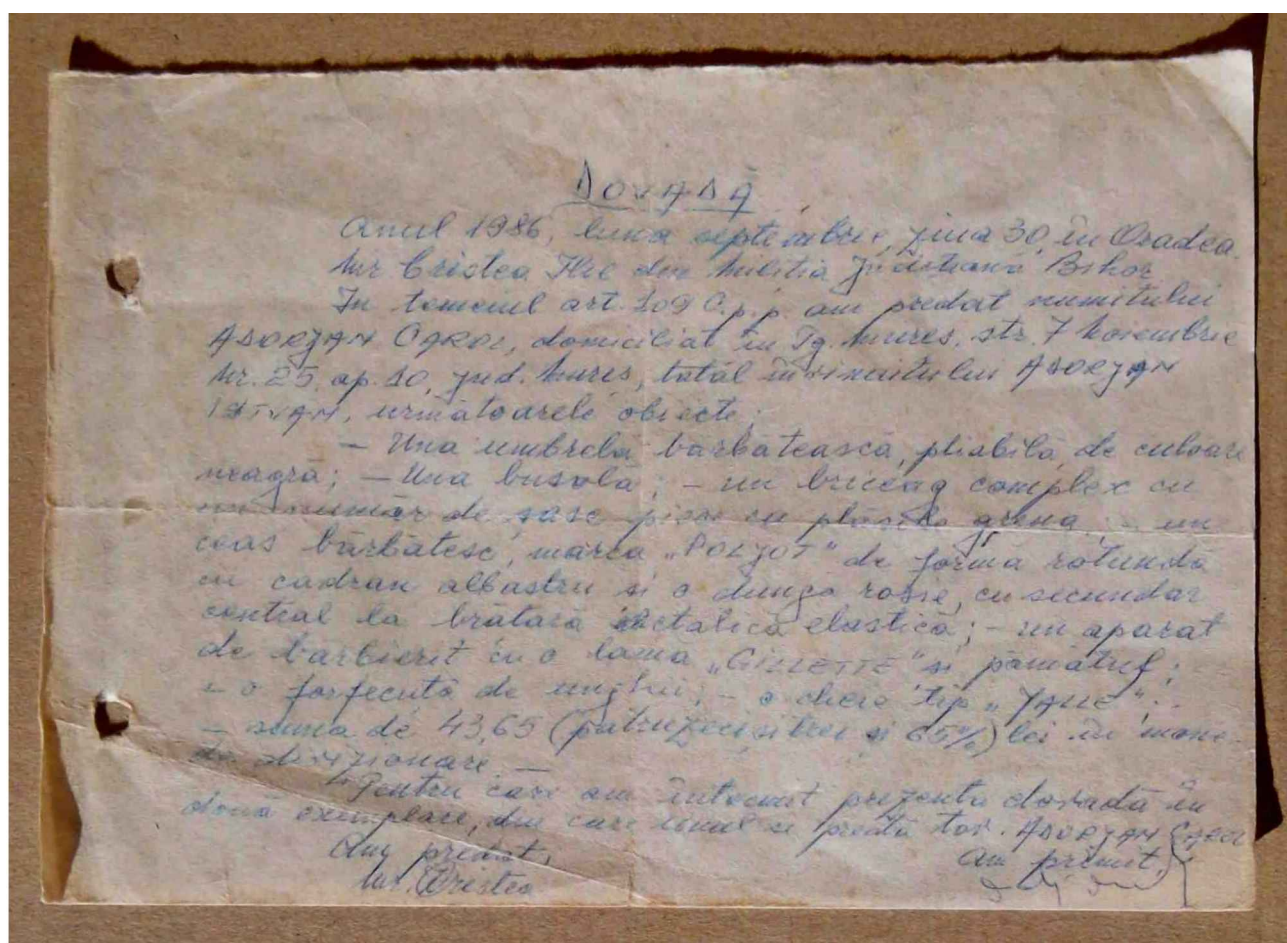 DOVADĂ
Anul 1986, luna septembrie, ziua 30, în Oradea.
Mr Cristea Ilie din Miliția Județeană Bihor
În temeiul art. 109 C.p.p. am predat numitului
ADORJAN CAROL, domiciliat în Tg. Mureș, str. 7 Noiembrie
Nr. 25, ap. 10, jud. Mureș, tatăl ADORJAN
ISTVAN, următoarele obiecte:
- Una umbrela bărbătească, pliabilă, de culoare
neagră; - Una busolă; - un briceag complex cu
un număr de șase piese cu plăsele grena; - un
ceas bărbătesc, marca „POLJOT" de forma rotundă
cu cadran albastru și o dungă roșie, cu secundar
central la brățară metalică elastică; - un aparat
de bărbierit cu o lama „GILLETTE" și pămătuf;
- o forfecuță de unghii; - o cheie tip „YALE";
- suma de 43,65 (patruzeci și trei și 65%) lei în mone-
de divizionare.-
Pentru care am întocmit prezenta dovadă în
două exemplare, din care unul se predă tov. ADORJAN CAROL
Am predat, Am primit,
Mr. Cristea